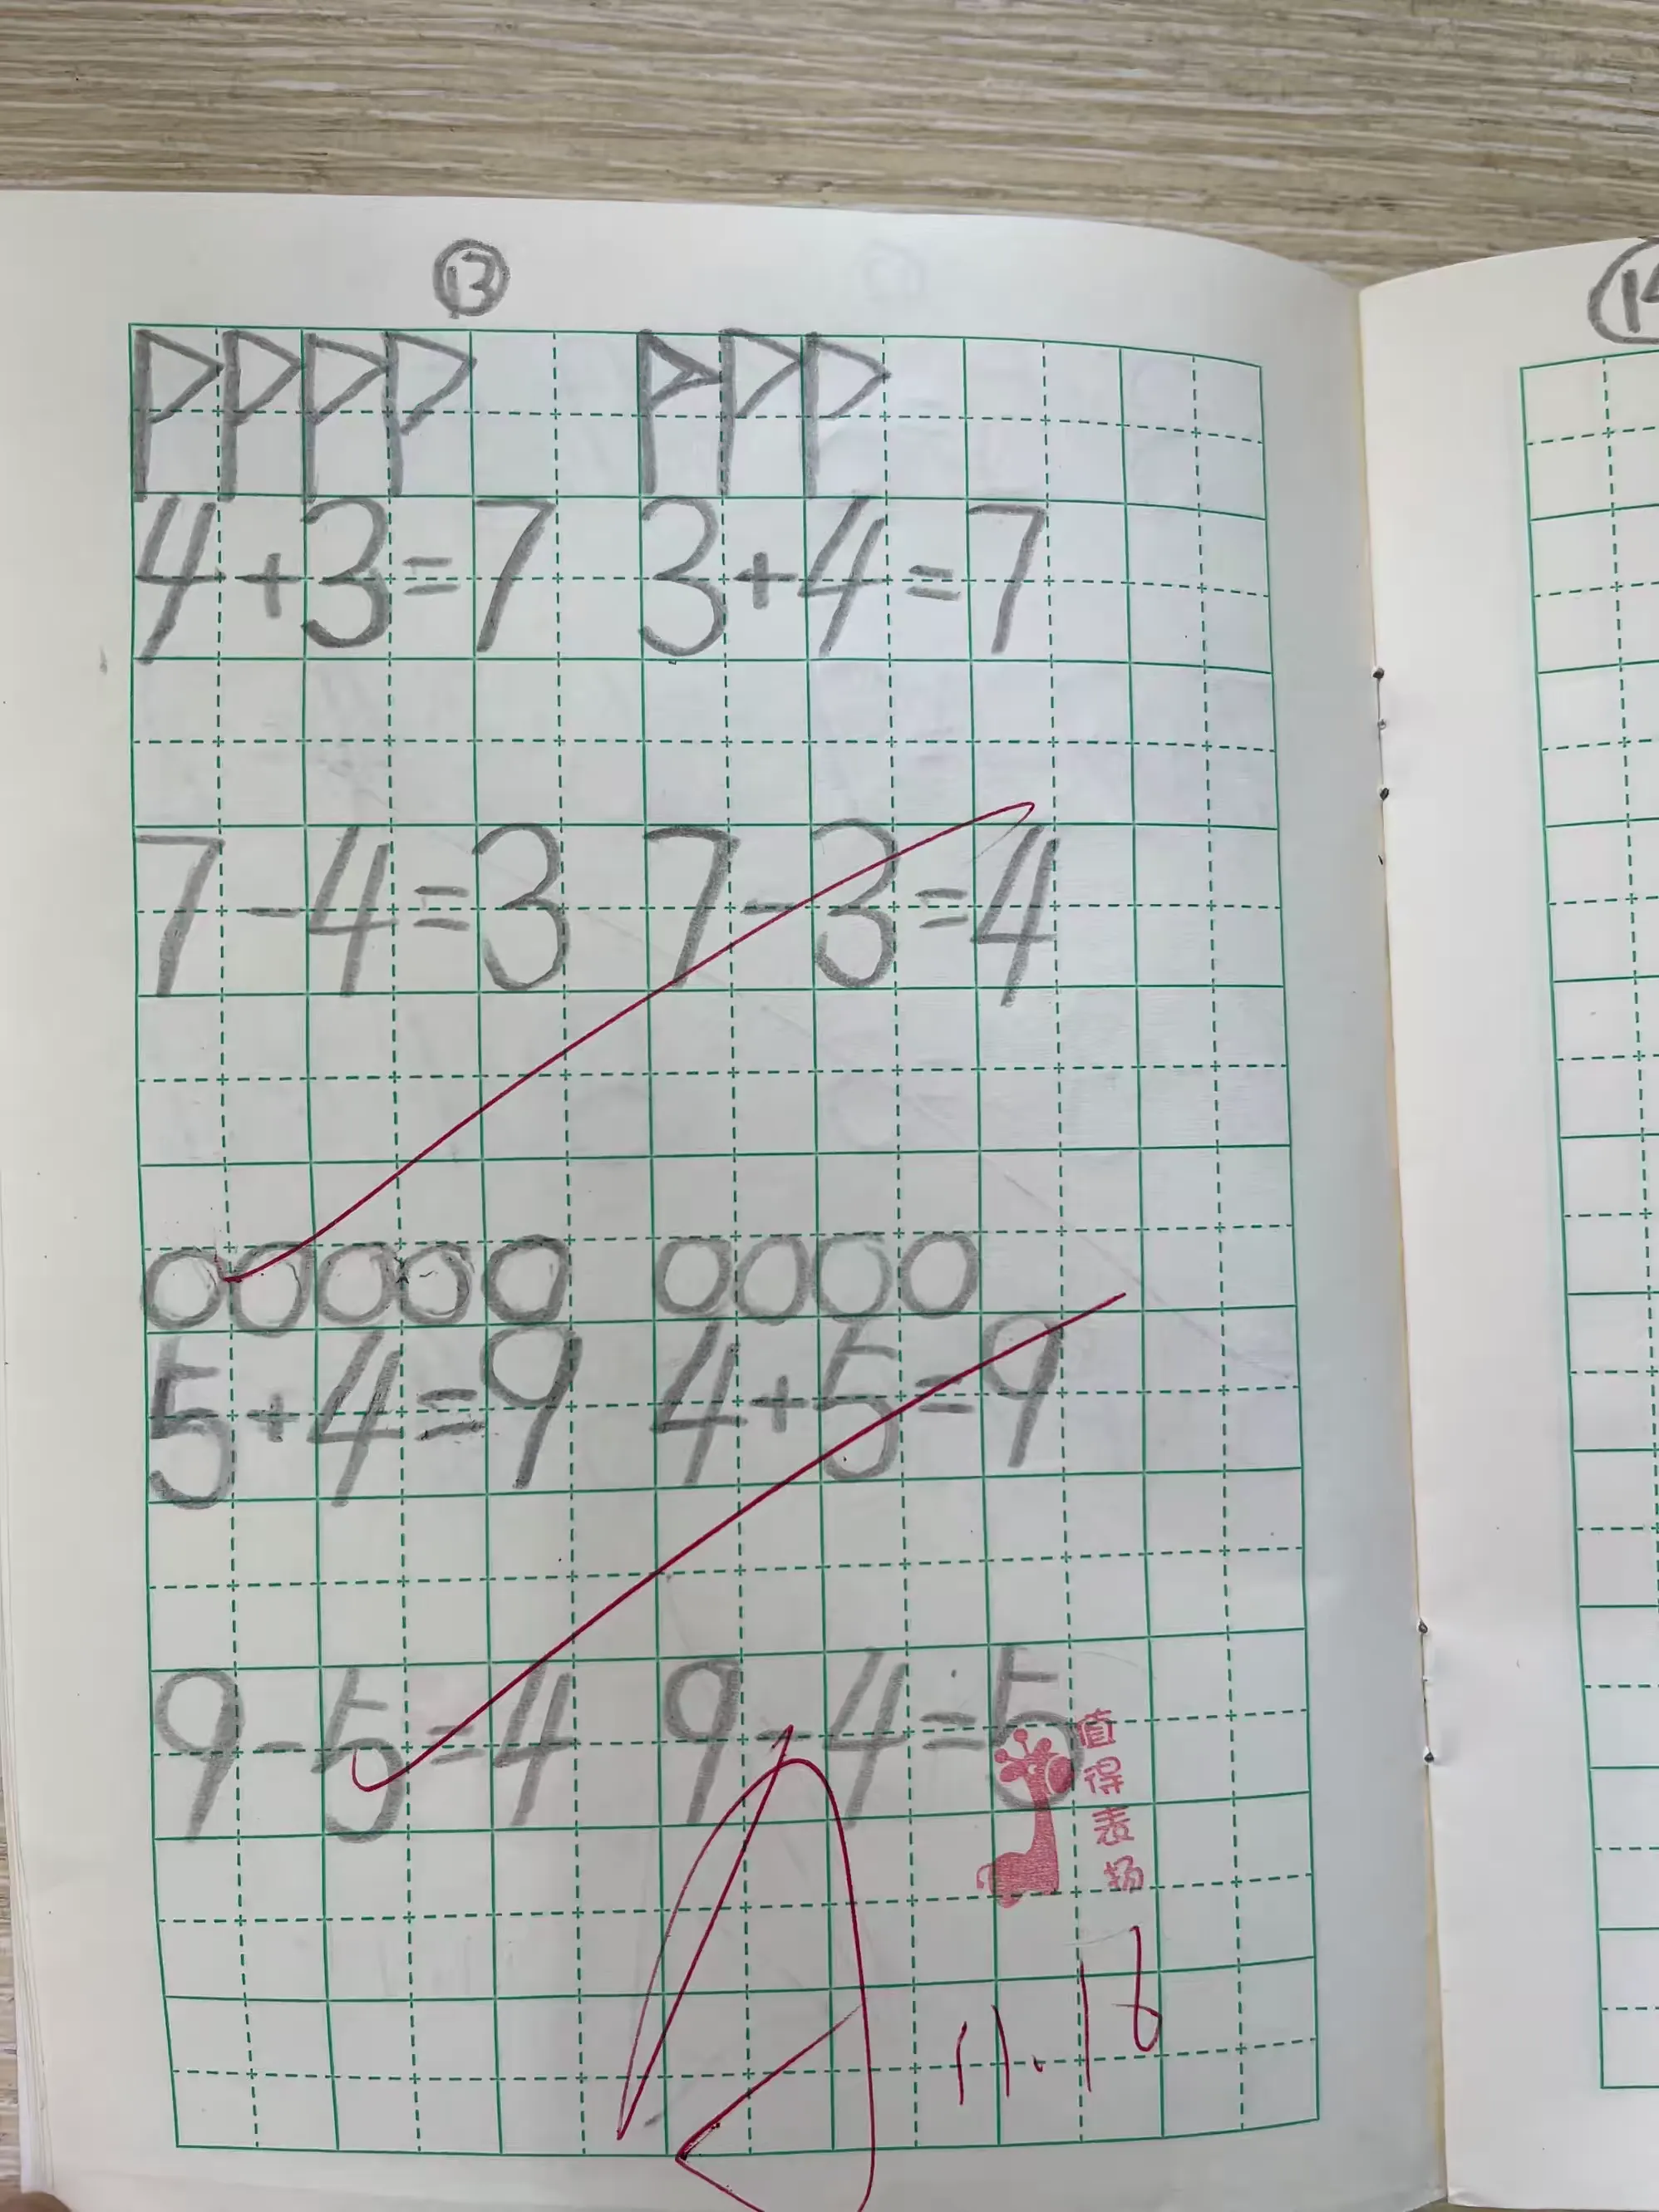 ⑬
4+3=7 3+4=7
7-4=3 7-3=4
5+4=9 4+5=9
9-5=4 9-4=5
值得表扬
A
11.18